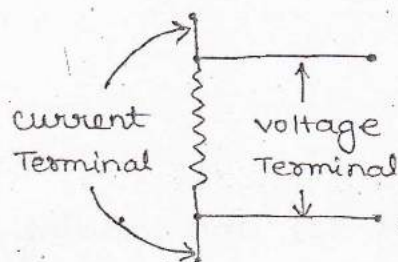 current
Terminal
voltage
Terminal